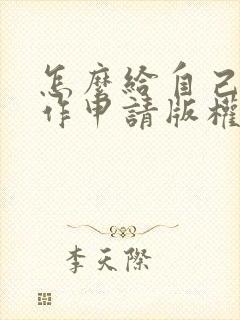 怎麼給自己
作申請版權
李天際